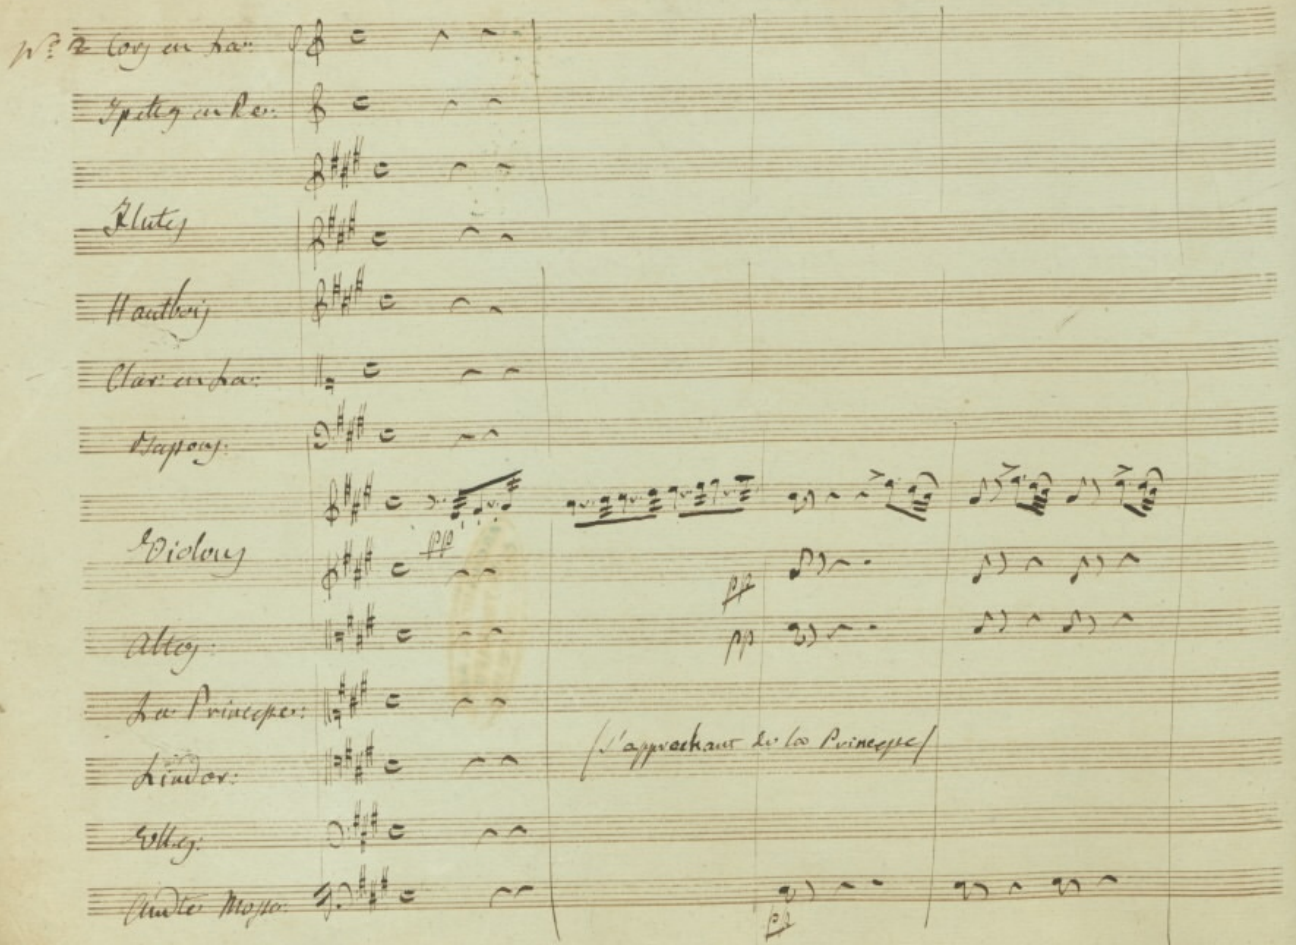 N.º 2 Cors en La:
Tpettes en Re:
Flutes
Hautbois
Clar: en La:
Bassons:
pp
Violons
pp
Altos:
pp
La Princesse:
(s'approchant de la Princesse)
Lindor:
Vlles:
Andte Mosso:
pp